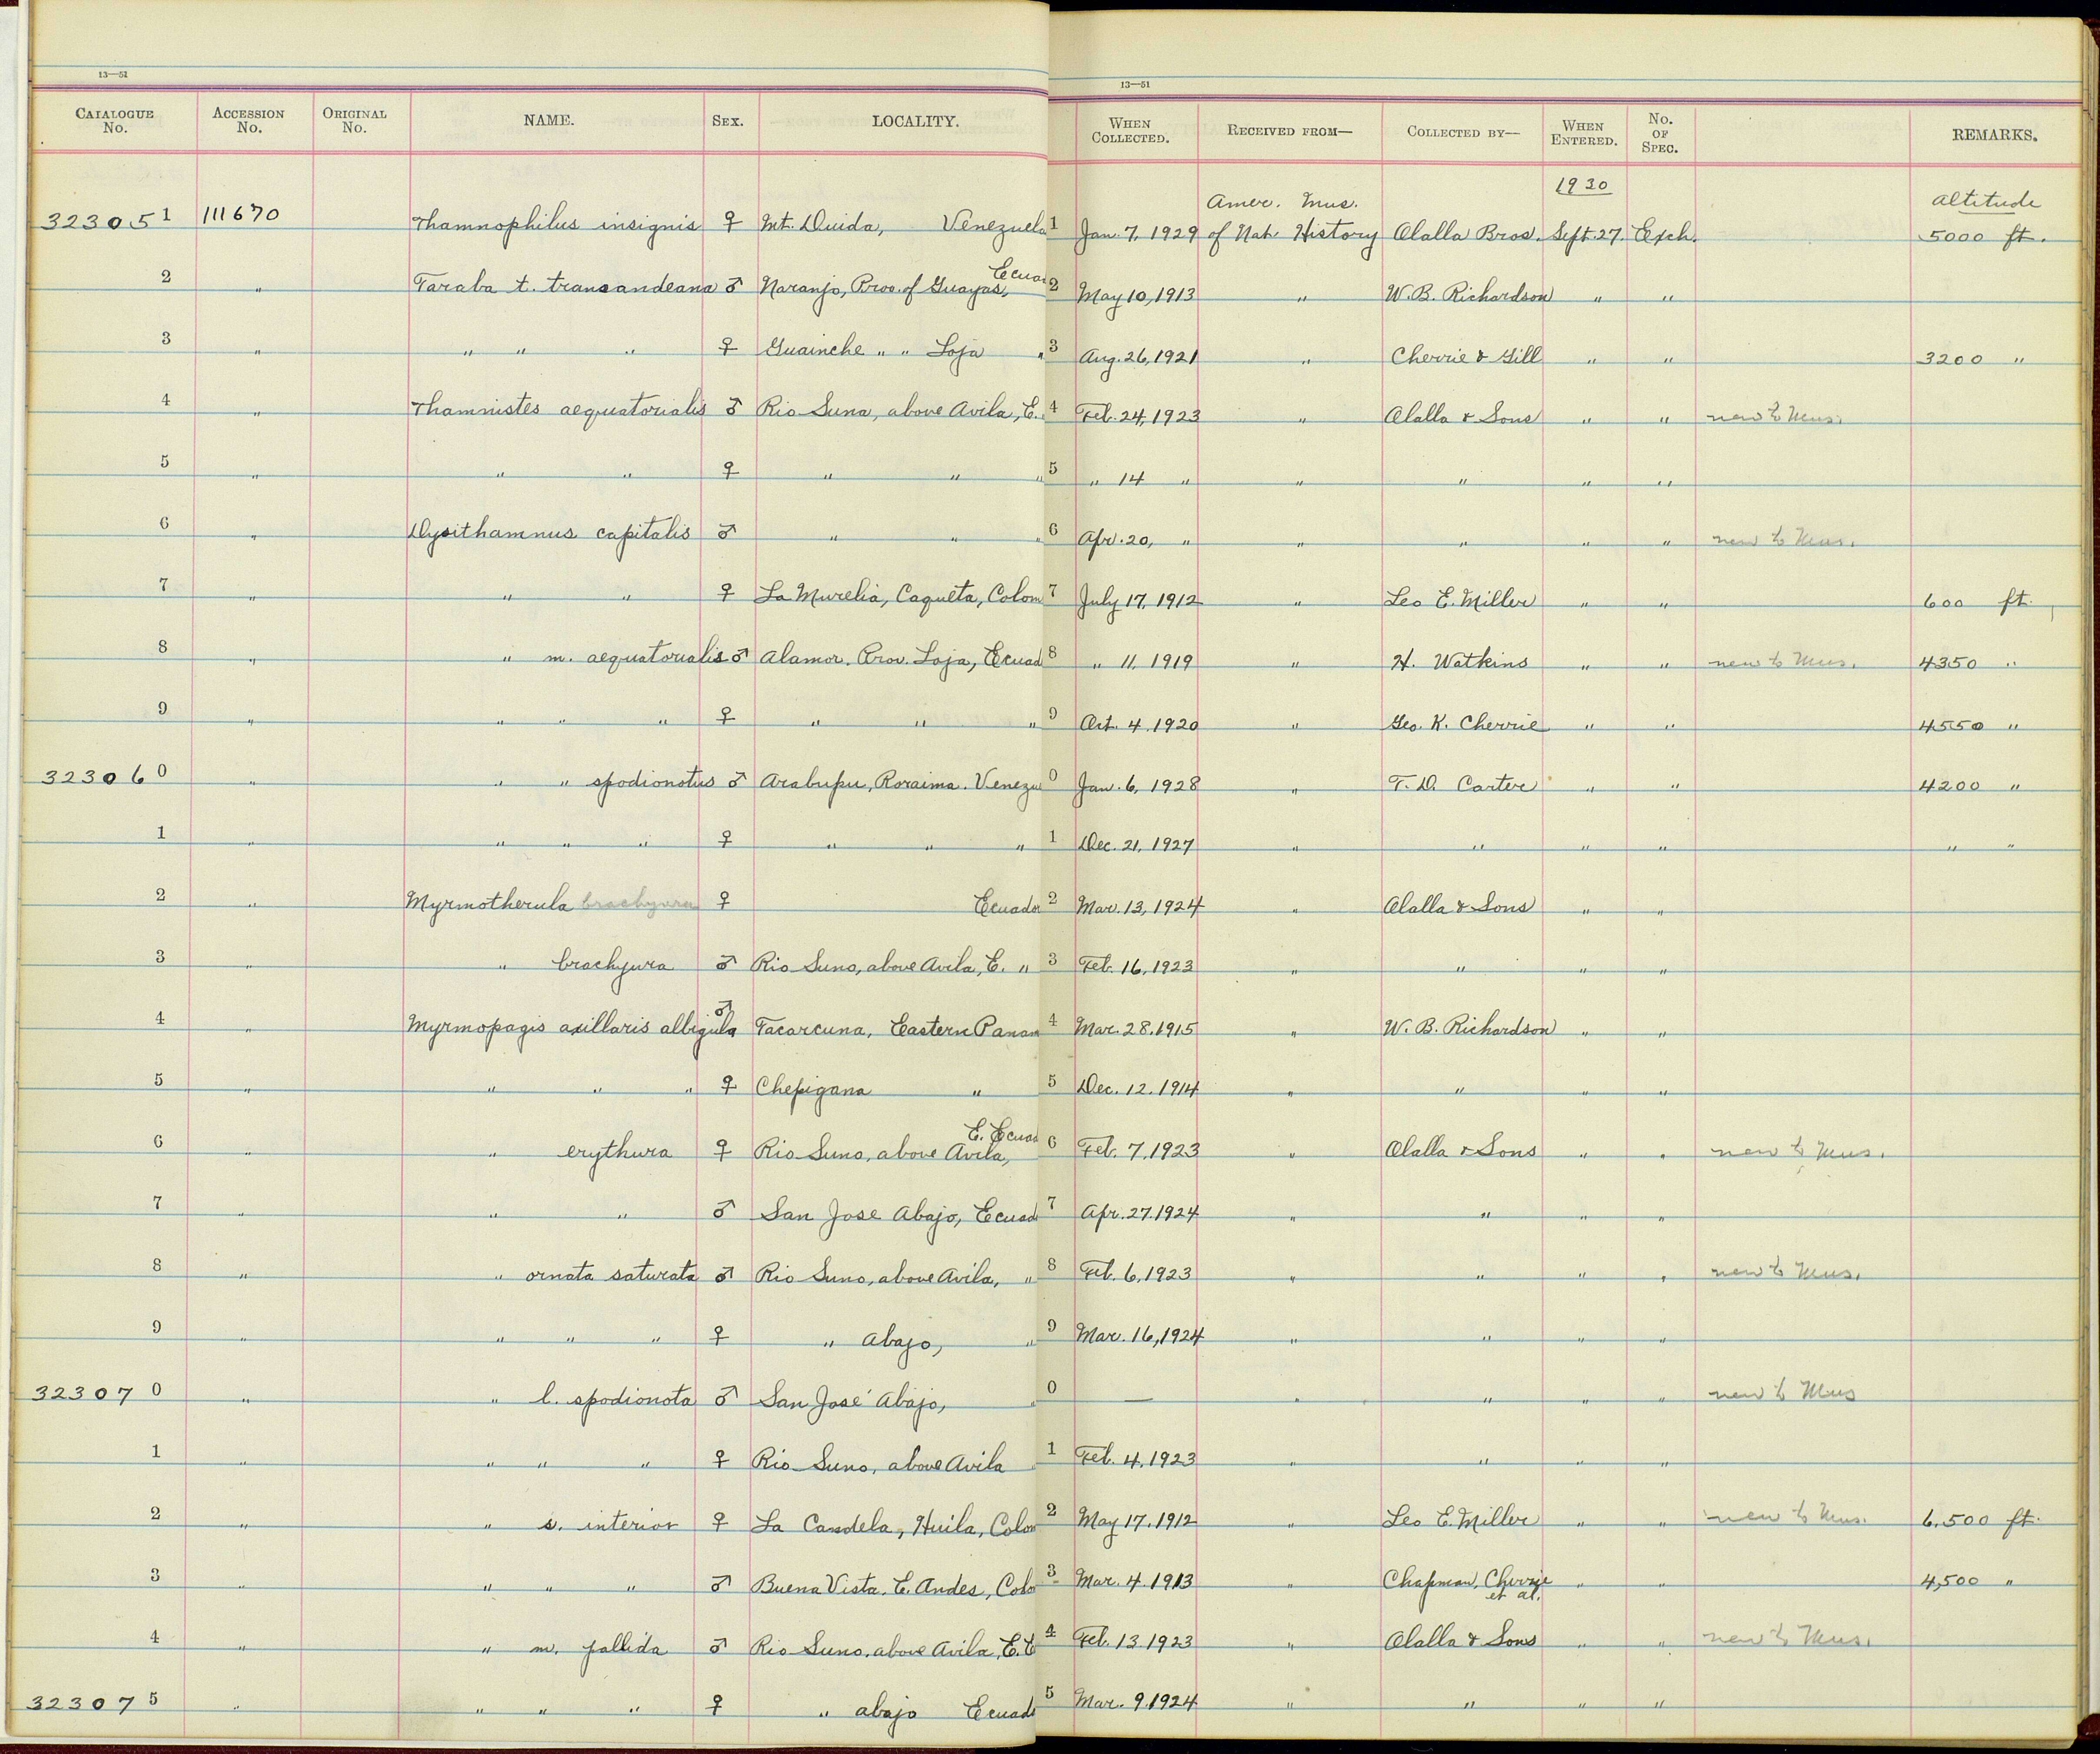 13—51 13—51
CATALOGUE No. ACCESSION No. ORIGINAL No. NAME. SEX. LOCALITY. WHEN COLLECTED. RECEIVED FROM— COLLECTED BY— WHEN ENTERED. No. OF SPEC. REMARKS.
1930
Amer. Mus. altitude
323051 111670 Thamnophilus insignis ♀ Mt. Duida, Venezuela 1 Jan. 7, 1929 of Nat. History Olalla Bros. Sept. 27. Exch. 5000 ft.
2 " Taraba t. transandeana ♂ Naranjo, Prov. of Guayas, Ecuad 2 May 10, 1913 " W. B. Richardson " "
3 " " " " ♀ Guainche " " Loja " 3 Aug. 26, 1921 " Cherrie & Gill " " 3200 "
4 " Thamnistes aequatorialis ♂ Rio Suna, above Avila, E. 4 Feb. 24, 1923 " Olalla & Sons " " new to Mus.
5 " " " ♀ " " " 5 " 14 " " " " "
6 " Dysithamnus capitalis ♂ " " " 6 Apr. 20, " " " " " new to Mus.
7 " " " ♀ La Murelia, Caqueta, Colom 7 July 17, 1912 " Leo E. Miller " " 600 ft.
8 " " m. aequatorialis ♂ Alamor. Prov. Loja, Ecuad 8 " 11, 1919 " H. Watkins " " new to Mus. 4350 "
9 " " " " ♀ " " " 9 Oct. 4. 1920 " Geo. K. Cherrie " " 4550 "
323060 " " " spodionotus ♂ Arabupu, Roraima. Venezu 0 Jan. 6, 1928 " T. D. Carter " " 4200 "
1 " " " " ♀ " " " 1 Dec. 21, 1927 " " " " " "
2 " Myrmotherula brachyura ♀ Ecuador 2 Mar. 13, 1924 " Olalla & Sons " "
3 " " brachyura ♂ Rio Suno, above Avila, E. " 3 Feb. 16, 1923 " " " "
4 " Myrmopagis axillaris albigula ♂ Tacarcuna, Eastern Panam 4 Mar. 28. 1915 " W. B. Richardson " "
5 " " " " ♀ Chepigana " 5 Dec. 12. 1914 " " " "
6 " " erythura ♀ Rio Suno, above Avila, E. Ecuad 6 Feb. 7. 1923 " Olalla & Sons " " new to Mus.
7 " " " ♂ San Jose Abajo, Ecuad 7 Apr. 27. 1924 " " " "
8 " " ornata saturata ♂ Rio Suno, above Avila, " 8 Feb. 6, 1923 " " " " new to Mus.
9 " " " " ♀ " Abajo, " 9 Mar. 16, 1924 " " " "
323070 " " l. spodionota ♂ San José Abajo, " 0 — " " " " new to Mus
1 " " " " ♀ Rio Suno, above Avila 1 Feb. 4, 1923 " " " "
2 " " s. interior ♀ La Candela, Huila, Colom 2 May 17. 1912 " Leo E. Miller " " new to Mus. 6,500 ft.
3 " " " " ♂ Buena Vista. E. Andes, Colo 3 Mar. 4. 1913 " Chapman, Cherrie et al. " " 4,500 "
4 " " m. pallida ♂ Rio Suno, above Avila, E. E 4 Feb. 13. 1923 " Olalla & Sons " " new to Mus.
323075 " " " " ♀ " abajo Ecuad 5 Mar. 9. 1924 " " " "